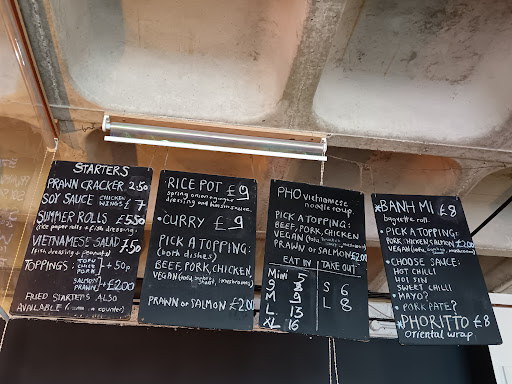 STARTERS
PRAWN CRACKER 2.50
SOY SAUCE CHICKEN WINGS £7
SUMMER ROLLS £5.50
(rice paper rolls + fish dressing)
VIETNAMESE SALAD 7.50
(fish dressing + peanuts)
TOPPINGS: TOFU CHICK PORK } + 50p
SALMON PRAWN } + £2.00
FRIED STARTERS ALSO
AVAILABLE ( counter)
RICE POT £9
spring onion ginger
dressing and hoisin sauce
CURRY £9
PICK A TOPPING:
(both dishes)
BEEF, PORK, CHICKEN,
VEGAN (tofu, mushrooms)
PRAWN or SALMON £2.00
PHO vietnamese
noodle soup
PICK A TOPPING:
BEEF, PORK, CHICKEN
VEGAN (tofu, mushrooms)
PRAWN or SALMON £2.00
EAT IN TAKE OUT
Mini 5
S 6
M 9
L 8
L 13
XL 16
*BANH MI £8
baguette roll
PICK A TOPPING:
PORK CHICKEN SALMON £2.00
VEGAN (tofu, mushrooms)
CHOOSE SAUCE:
HOT CHILLI
HOI SIN
SWEET CHILLI
MAYO?
PORK PATE?
*PHORITTO £8
oriental wrap